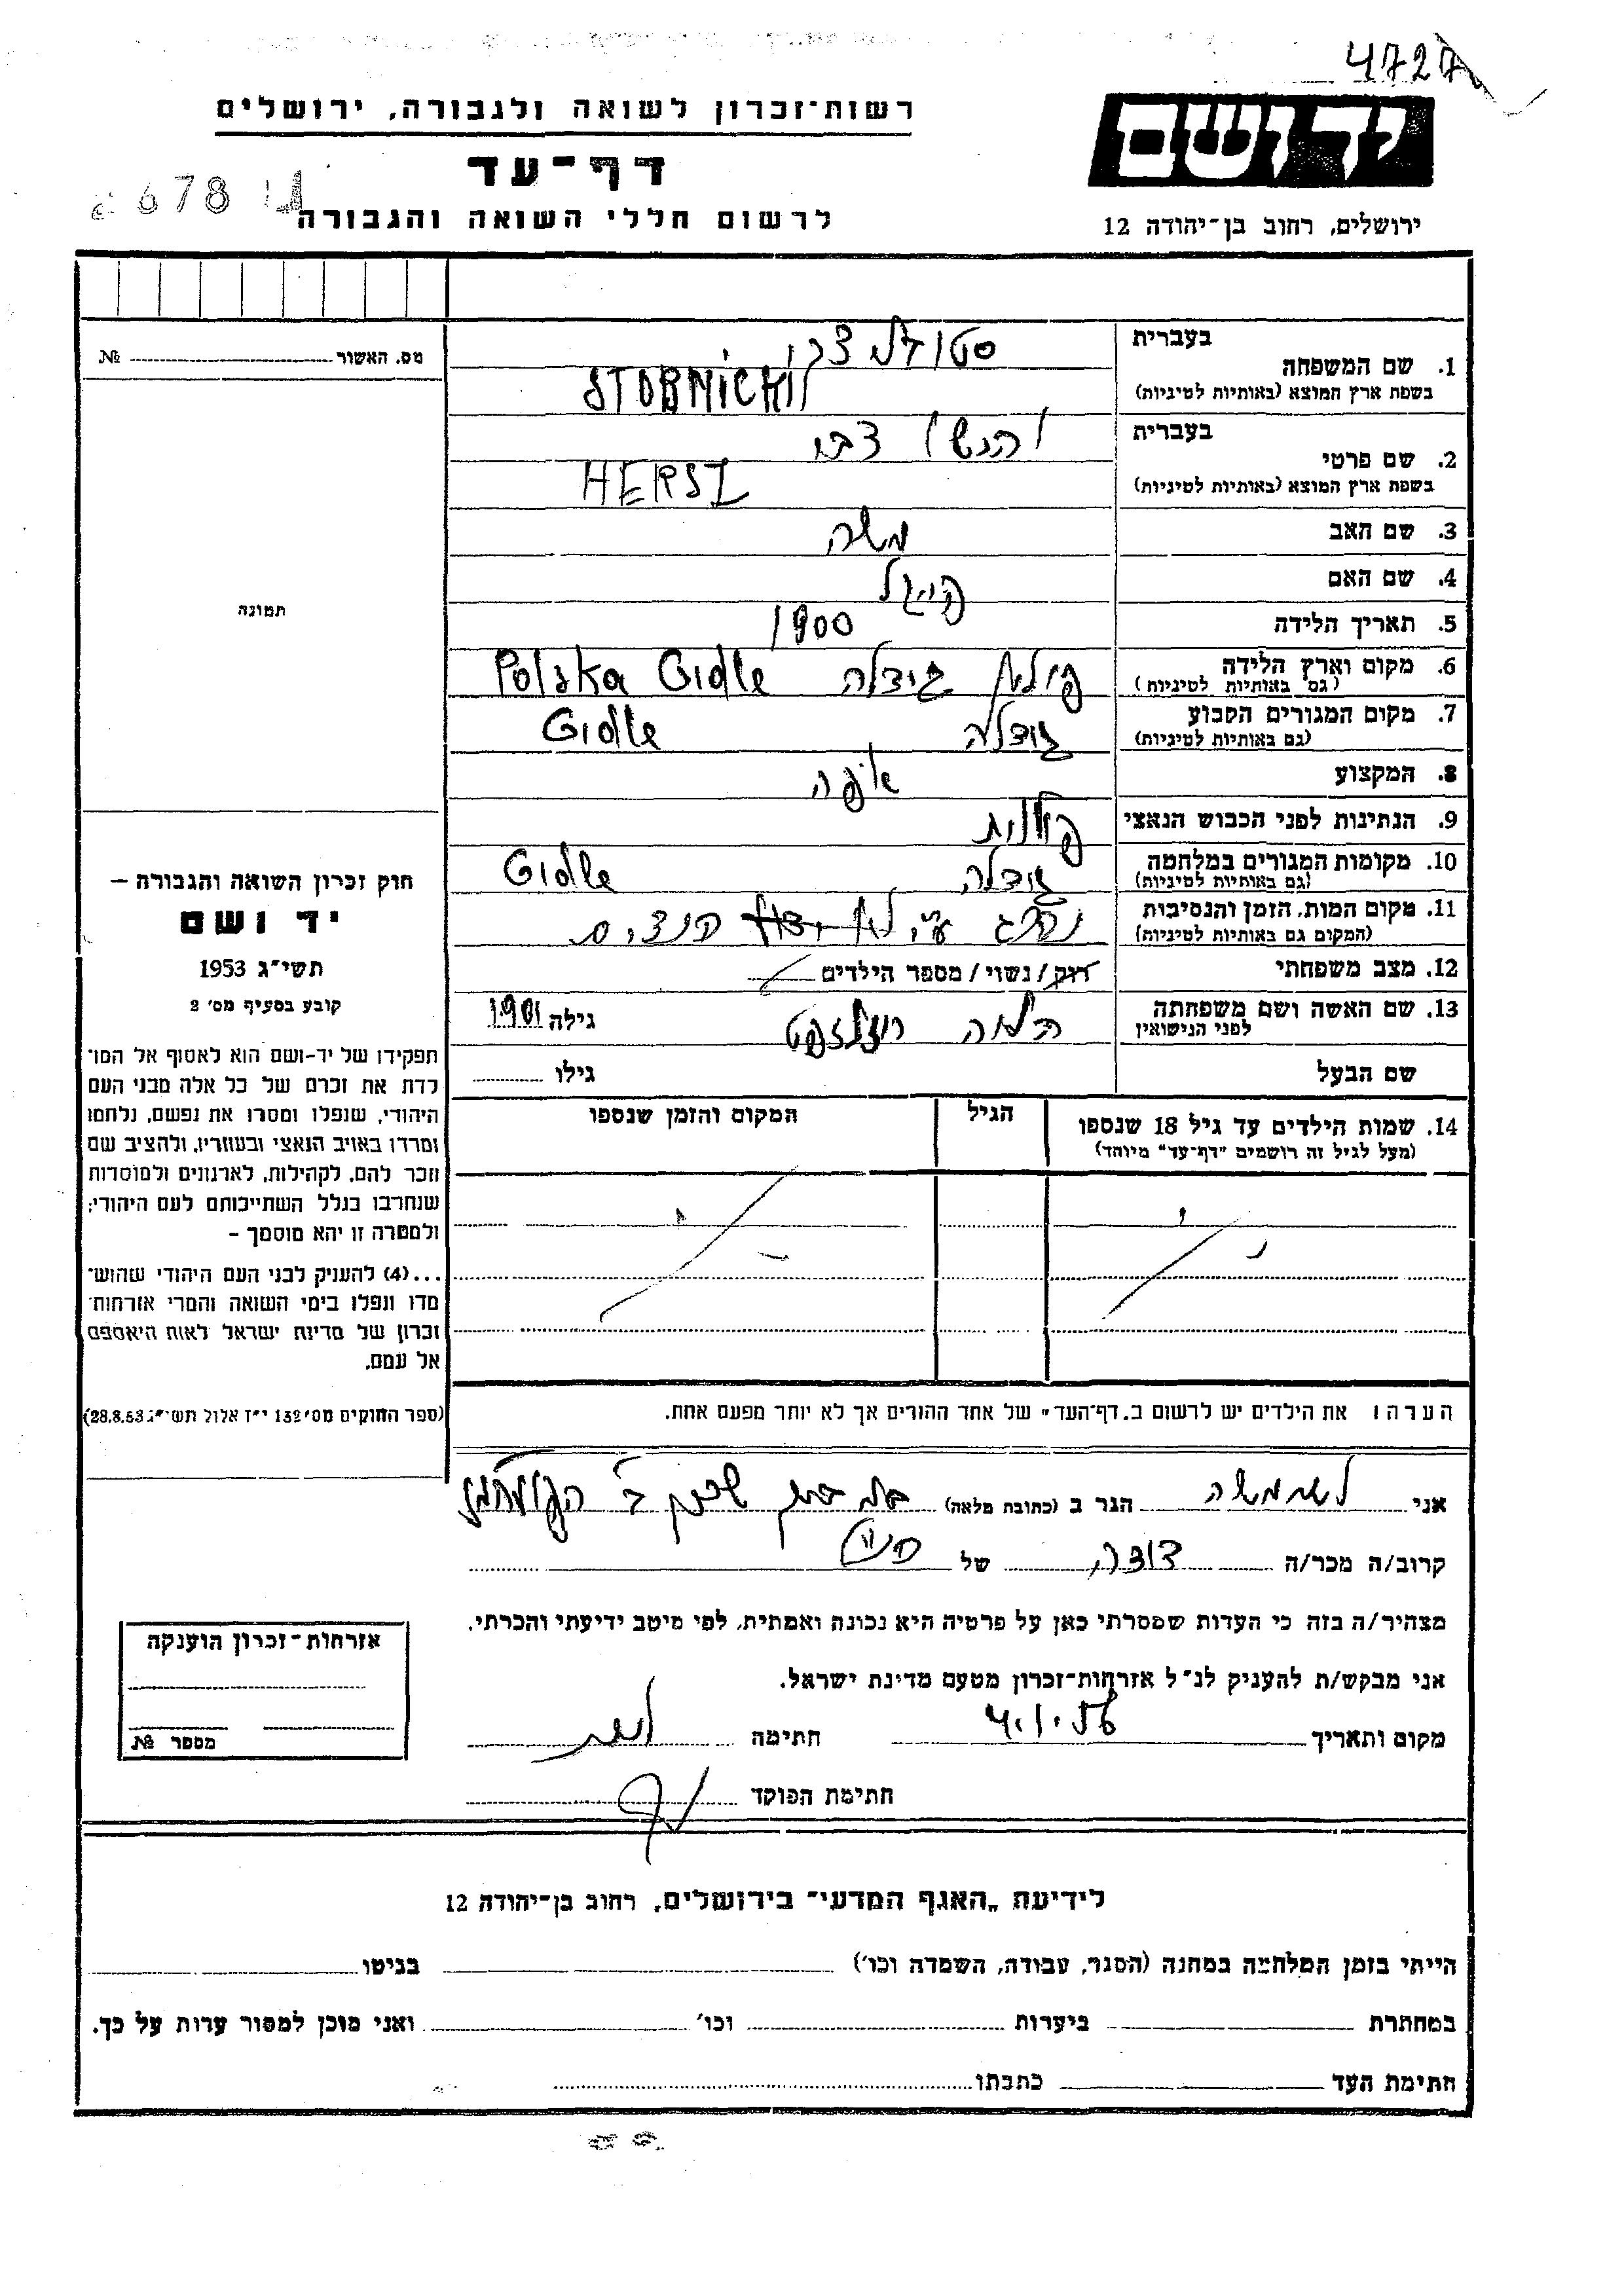 4727
רשות־זכרון לשואה ולגבורה, ירושלים
יד ושם
דף־עד
678
לרשום חללי השואה והגבורה
ירושלים, רחוב בן־יהודה 12
מס. האשור № 
בעברית
1. שם המשפחה
בשפת ארץ המוצא (באותיות לטיניות)
בעברית
2. שם פרטי צבי
בשפת ארץ המוצא (באותיות לטיניות) HERSZ
3. שם האב משה
4. שם האם
5. תאריך הלידה 1900
6. מקום וארץ הלידה פולין גידלה Polska Gidle
(גם באותיות לטיניות)
7. מקום המגורים הקבוע גידלה Gidle
(גם באותיות לטיניות)
8. המקצוע אופה
9. הנתינות לפני הכבוש הנאצי פולנית
10. מקומות המגורים במלחמה גידלה Gidle
(גם באותיות לטיניות)
11. מקום המות, הזמן והנסיבות נהרג ע"י הנצים
(המקום גם באותיות לטיניות)
12. מצב משפחתי רוק/נשוי/מספר הילדים
13. שם האשה ושם משפחתה גילה 1901
לפני הנישואין
שם הבעל גילו
14. שמות הילדים עד גיל 18 שנספו הגיל המקום והזמן שנספו
(מעל לגיל זה רושמים "דף־עד" מיוחד)
הערה: את הילדים יש לרשום ב„דף־העד" של אחד ההורים אך לא יותר מפעם אחת.
תמונה
חוק זכרון השואה והגבורה –
יד ושם
תשי"ג 1953
קובע בסעיף מס' 2
תפקידו של יד-ושם הוא לאסוף אל המו־
לדת את זכרם של כל אלה מבני העם
היהודי, שנפלו ומסרו את נפשם, נלחמו
ומרדו באויב הנאצי ובעוזריו, ולהציב שם
וזכר להם, לקהילות, לארגונים ולמוסדות
שנחרבו בגלל השתייכותם לעם היהודי;
ולמטרה זו יהא מוסמך –
...(4) להעניק לבני העם היהודי שהוש־
מדו ונפלו בימי השואה והמרי אזרחות־
זכרון של מדינת ישראל לאות היאספם
אל עמם.
(ספר החוקים מס' 132 י"ז אלול תשי"ג 28.8.53)
אני הגר ב (כתובת מלאה)
קרוב/ה מכר/ה של
מצהיר/ה בזה כי העדות שמסרתי כאן על פרטיה היא נכונה ואמתית, לפי מיטב ידיעתי והכרתי.
אני מבקש/ת להעניק לנ"ל אזרחות־זכרון מטעם מדינת ישראל.
מקום ותאריך 4.1.56 חתימה
חתימת הפוקד
אזרחות־זכרון הוענקה
מספר №
לידיעת „האגף המדעי" בירושלים, רחוב בן־יהודה 12
הייתי בזמן המלחמה במחנה (הסגר, עבודה, השמדה וכו') בגיטו
במחתרת ביערות וכו' ואני מוכן למסור עדות על כך.
חתימת העד כתבתו